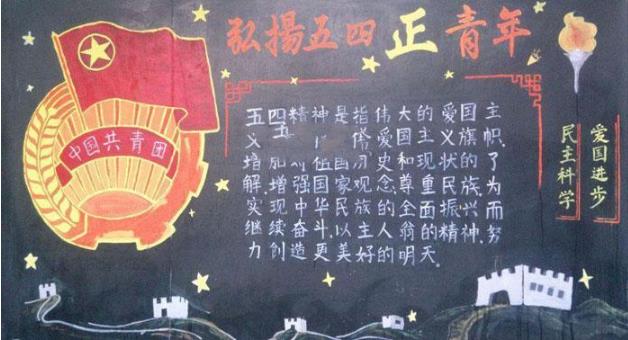 弘揚五四正青年
中国共青团
五四精神是指伟大的爱国主
义 爱国主义旗帜
增 史和现状的了
解增强国家观念尊重民族为
实现中华民族的全面振兴而
继续奋斗.以主人翁的精神.努
力创造更美好的明天.
爱国进步
民主科学